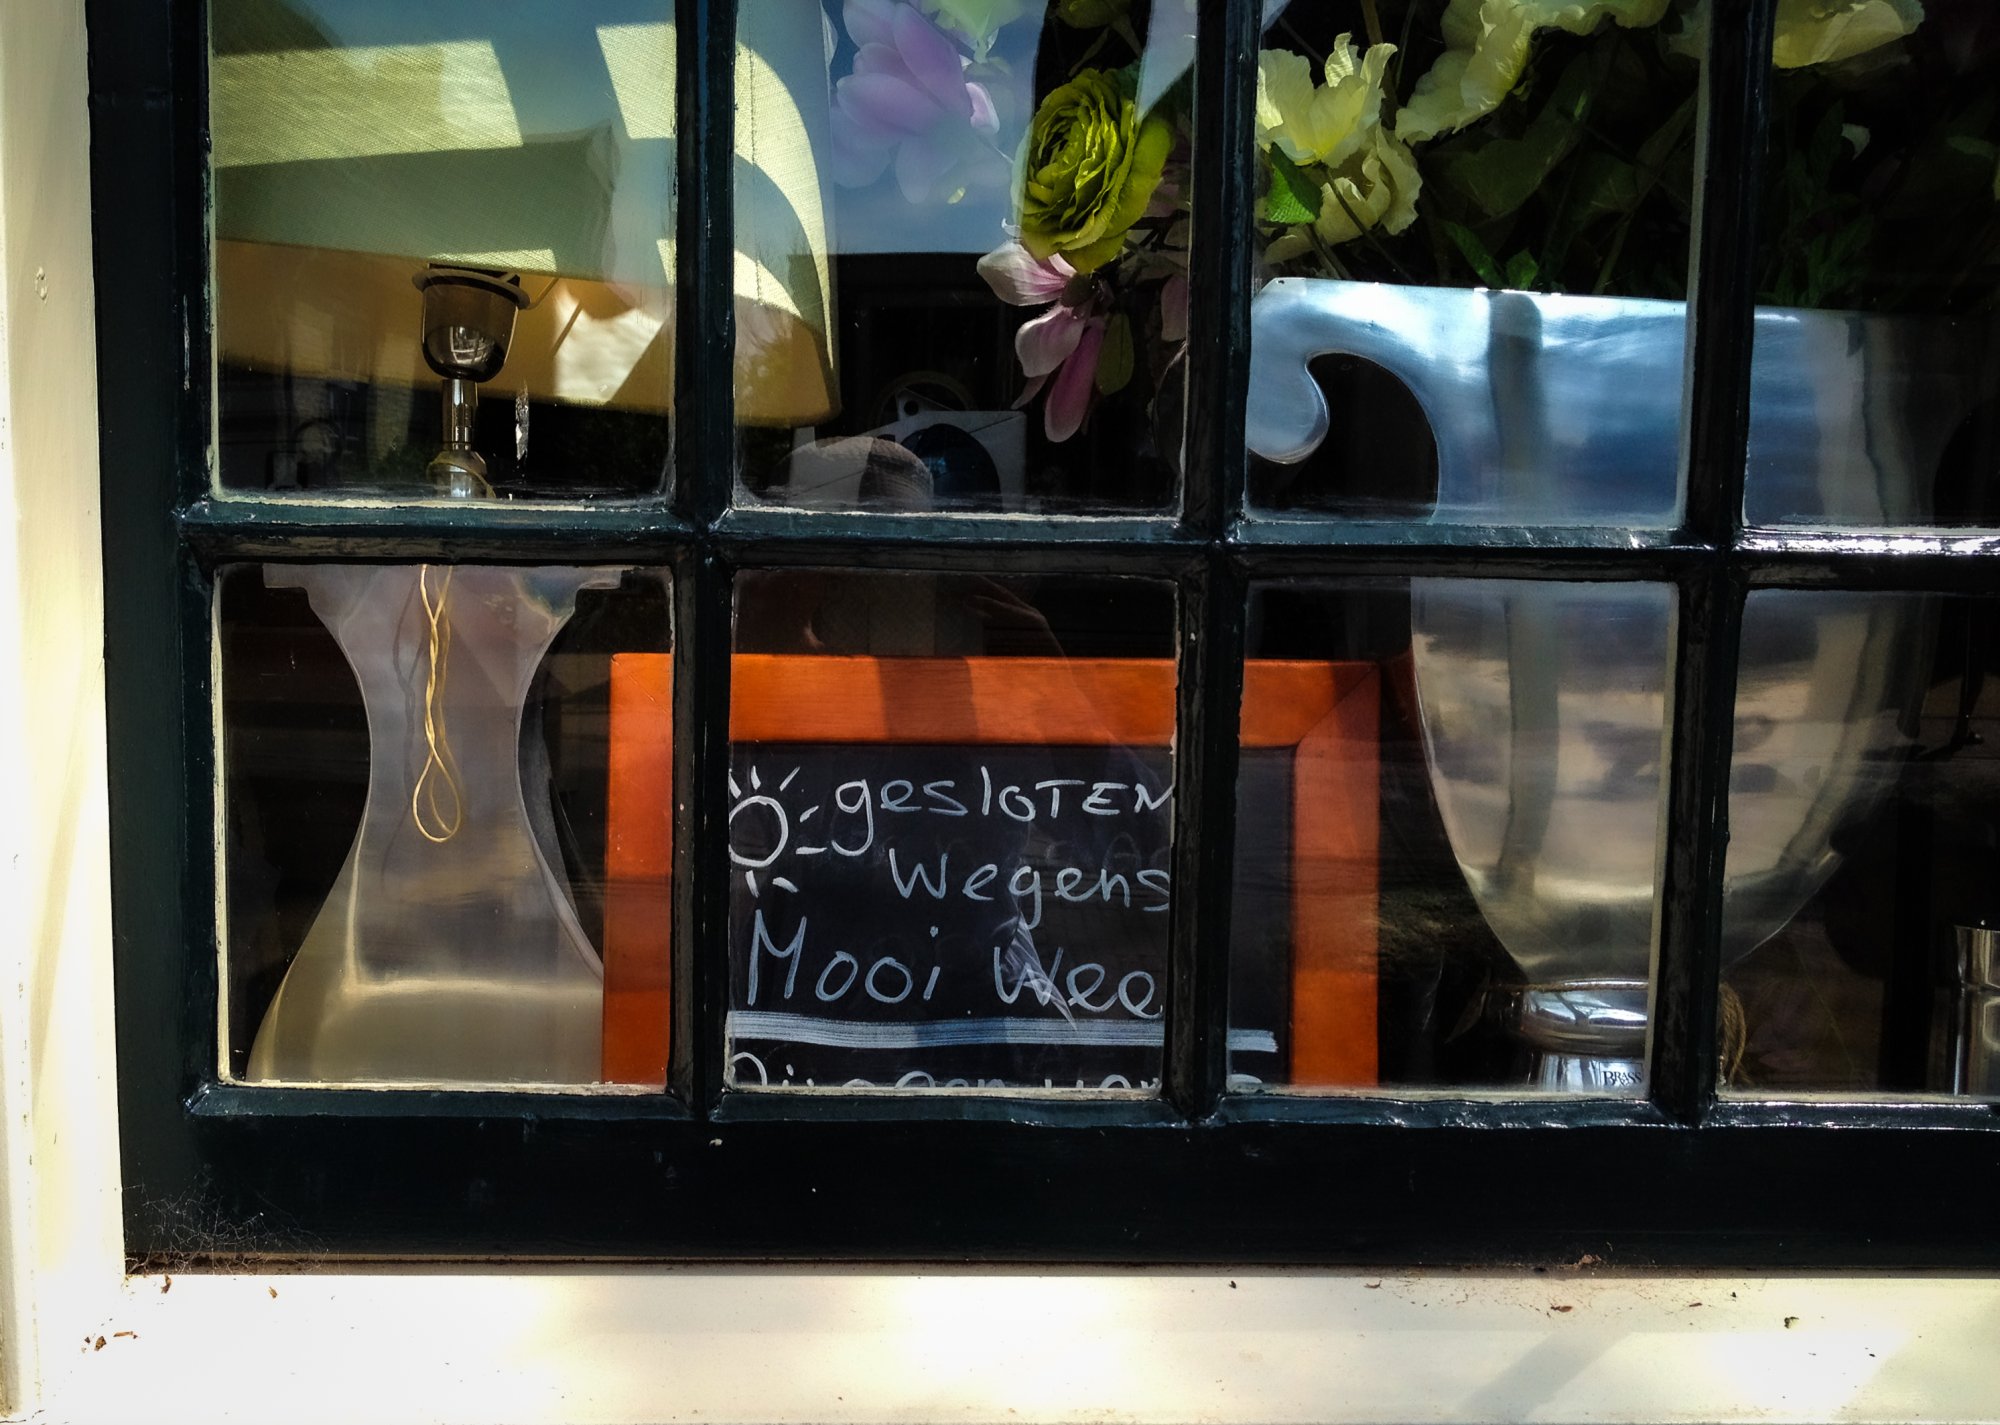 geslOTEN
wegens
Mooi Wee
BRASS